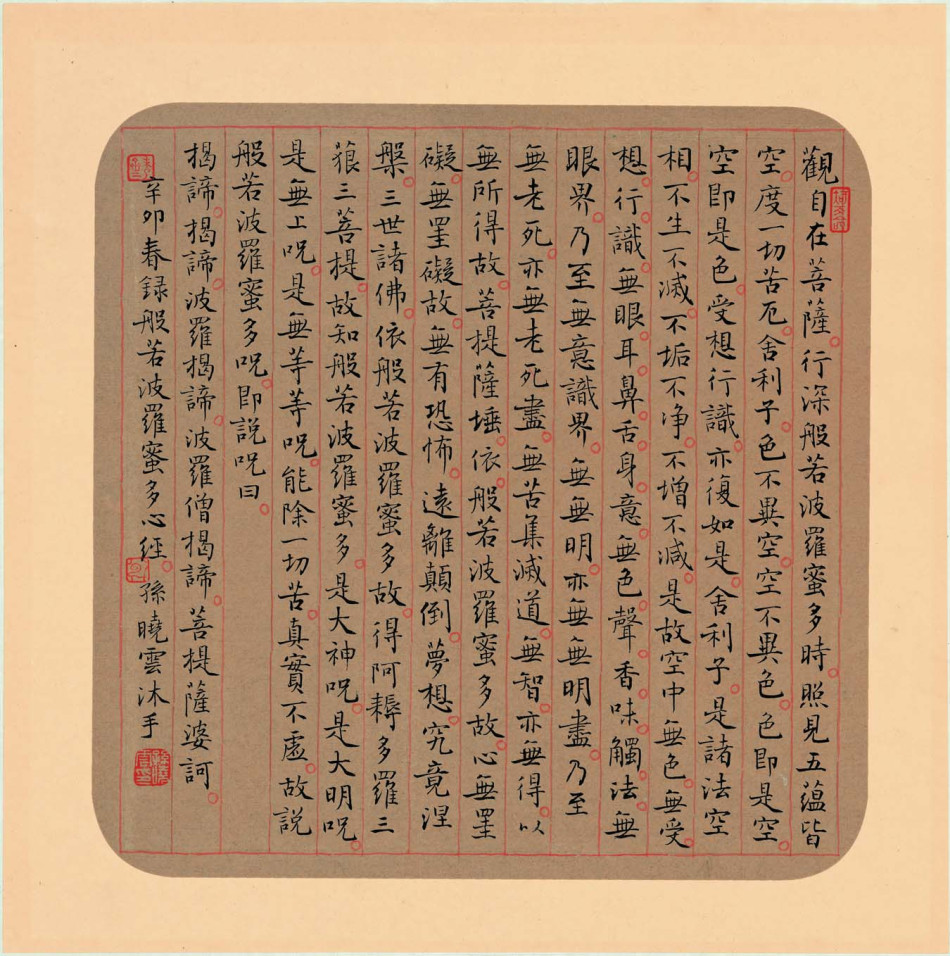 觀自在菩薩行深般若波羅蜜多時照見五蘊皆
空度一切苦厄舍利子色不異空空不異色色即是空
空即是色受想行識亦復如是舍利子是諸法空
相不生不滅不垢不净不增不減是故空中無色無受
想行識無眼耳鼻舌身意無色聲香味觸法無
眼界乃至無意識界無無明亦無無明盡乃至
無老死亦無老死盡無苦集滅道無智亦無得以
無所得故菩提薩埵依般若波羅蜜多故心無罣
礙無罣礙故無有恐怖遠離顛倒夢想究竟涅
槃三世諸佛依般若波羅蜜多故得阿耨多羅三
藐三菩提故知般若波羅蜜多是大神咒是大明咒
是無上咒是無等等咒能除一切苦真實不虛故説
般若波羅蜜多咒即説咒曰
揭諦揭諦波羅揭諦波羅僧揭諦菩提薩婆訶
辛卯春録般若波羅蜜多心經孫曉雲沐手